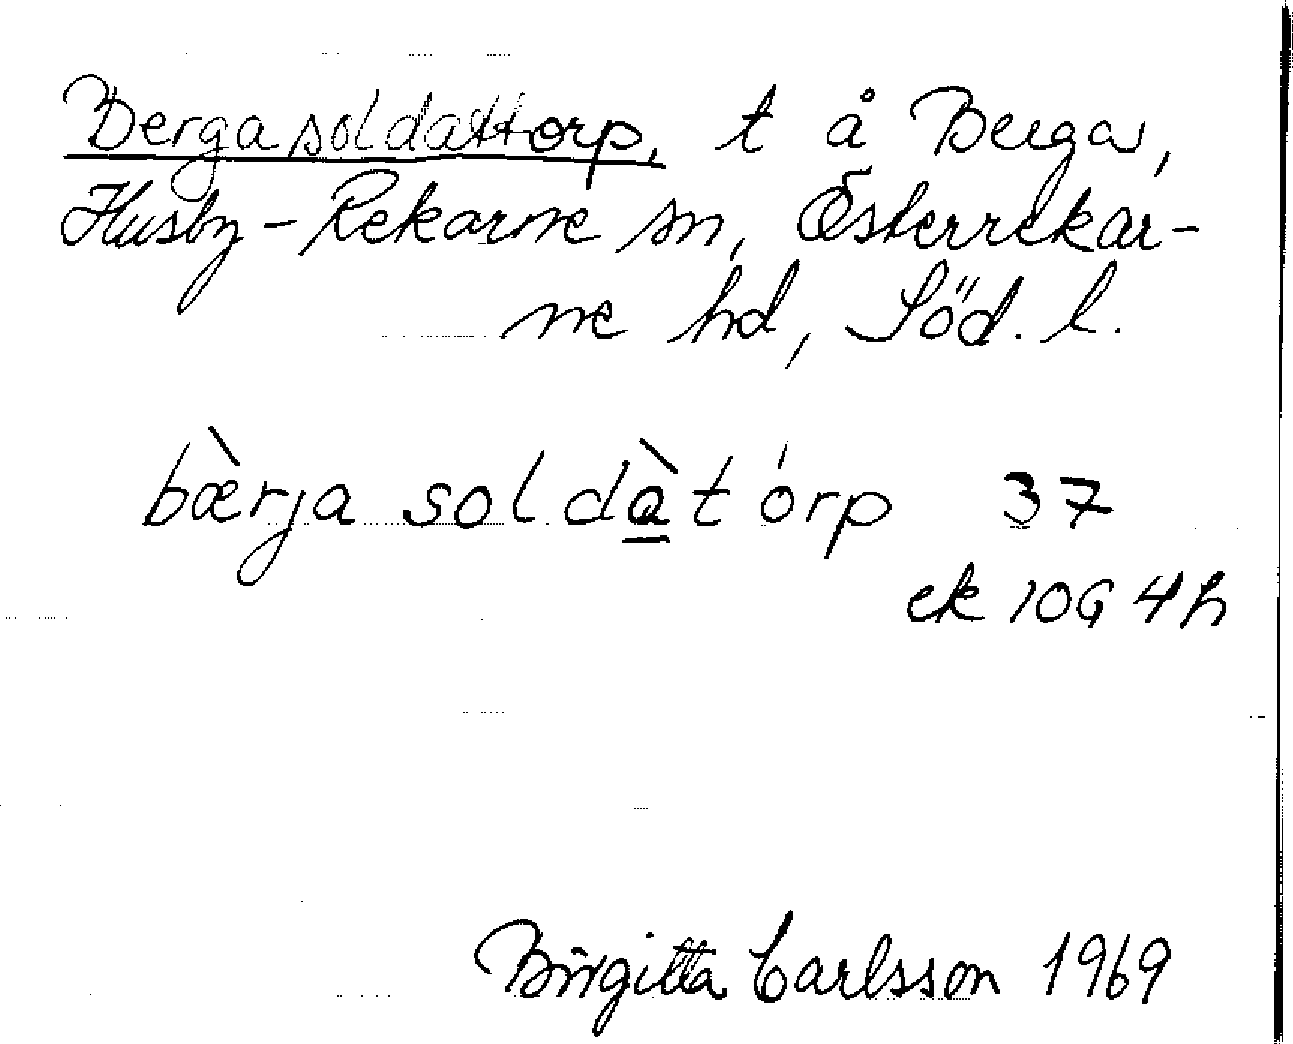 Berga soldattorp, t å Berga,
Husby-Rekarne sn, Österrekar-
ne hd, Söd. l.
bæ̀rja soldà̱tórp 37
ek 10G 4h
Birgitta Carlsson 1969